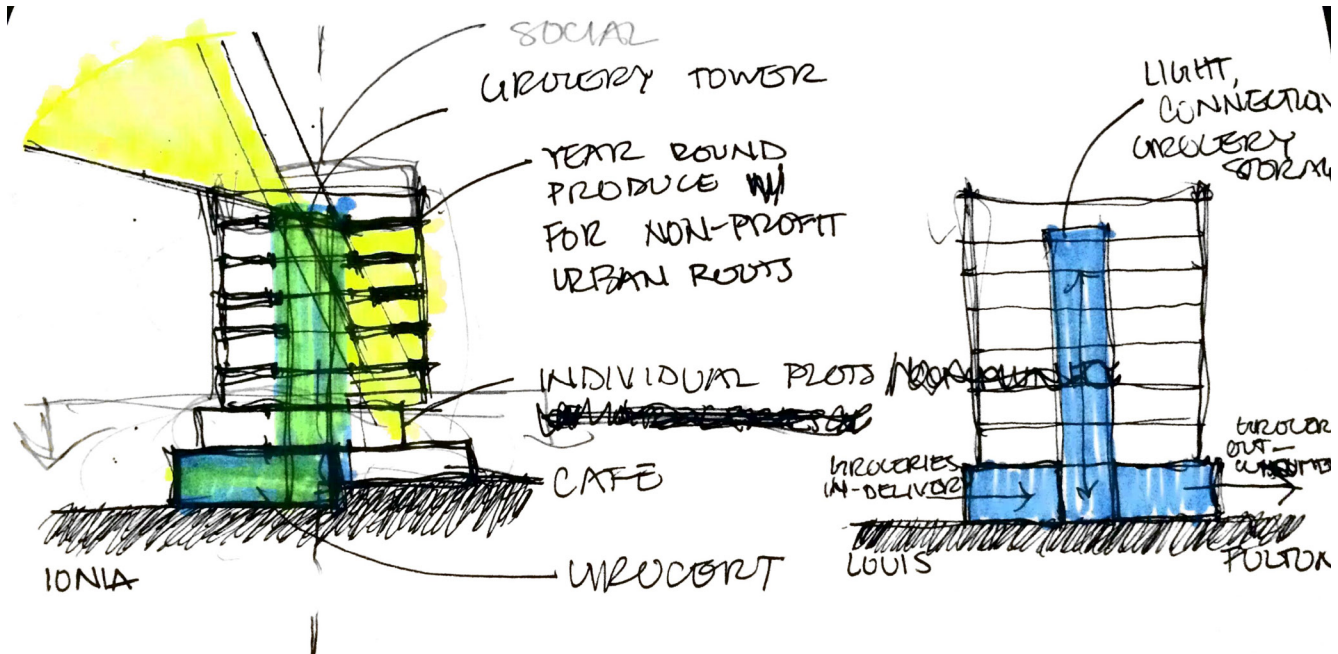 SOCIAL
GROCERY TOWER
YEAR ROUND
PRODUCE W/
FOR NON-PROFIT
URBAN ROOTS
INDIVIDUAL PLOTS /
CAFE
GROCERY
IONIA
LIGHT,
CONNECTION
GROCERY
STORAG
GROCERIES
IN-DELIVER
GROCER
OUT-
LOUIS
FULTON